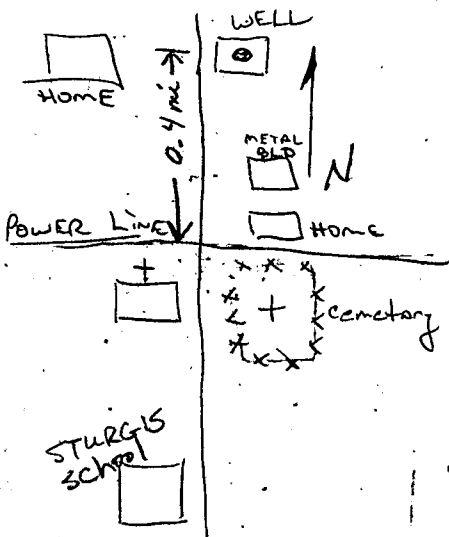 WELL
HOME
0.4 mi
METAL
BLD
N
POWER LINE
HOME
cemetary
STURGIS
School